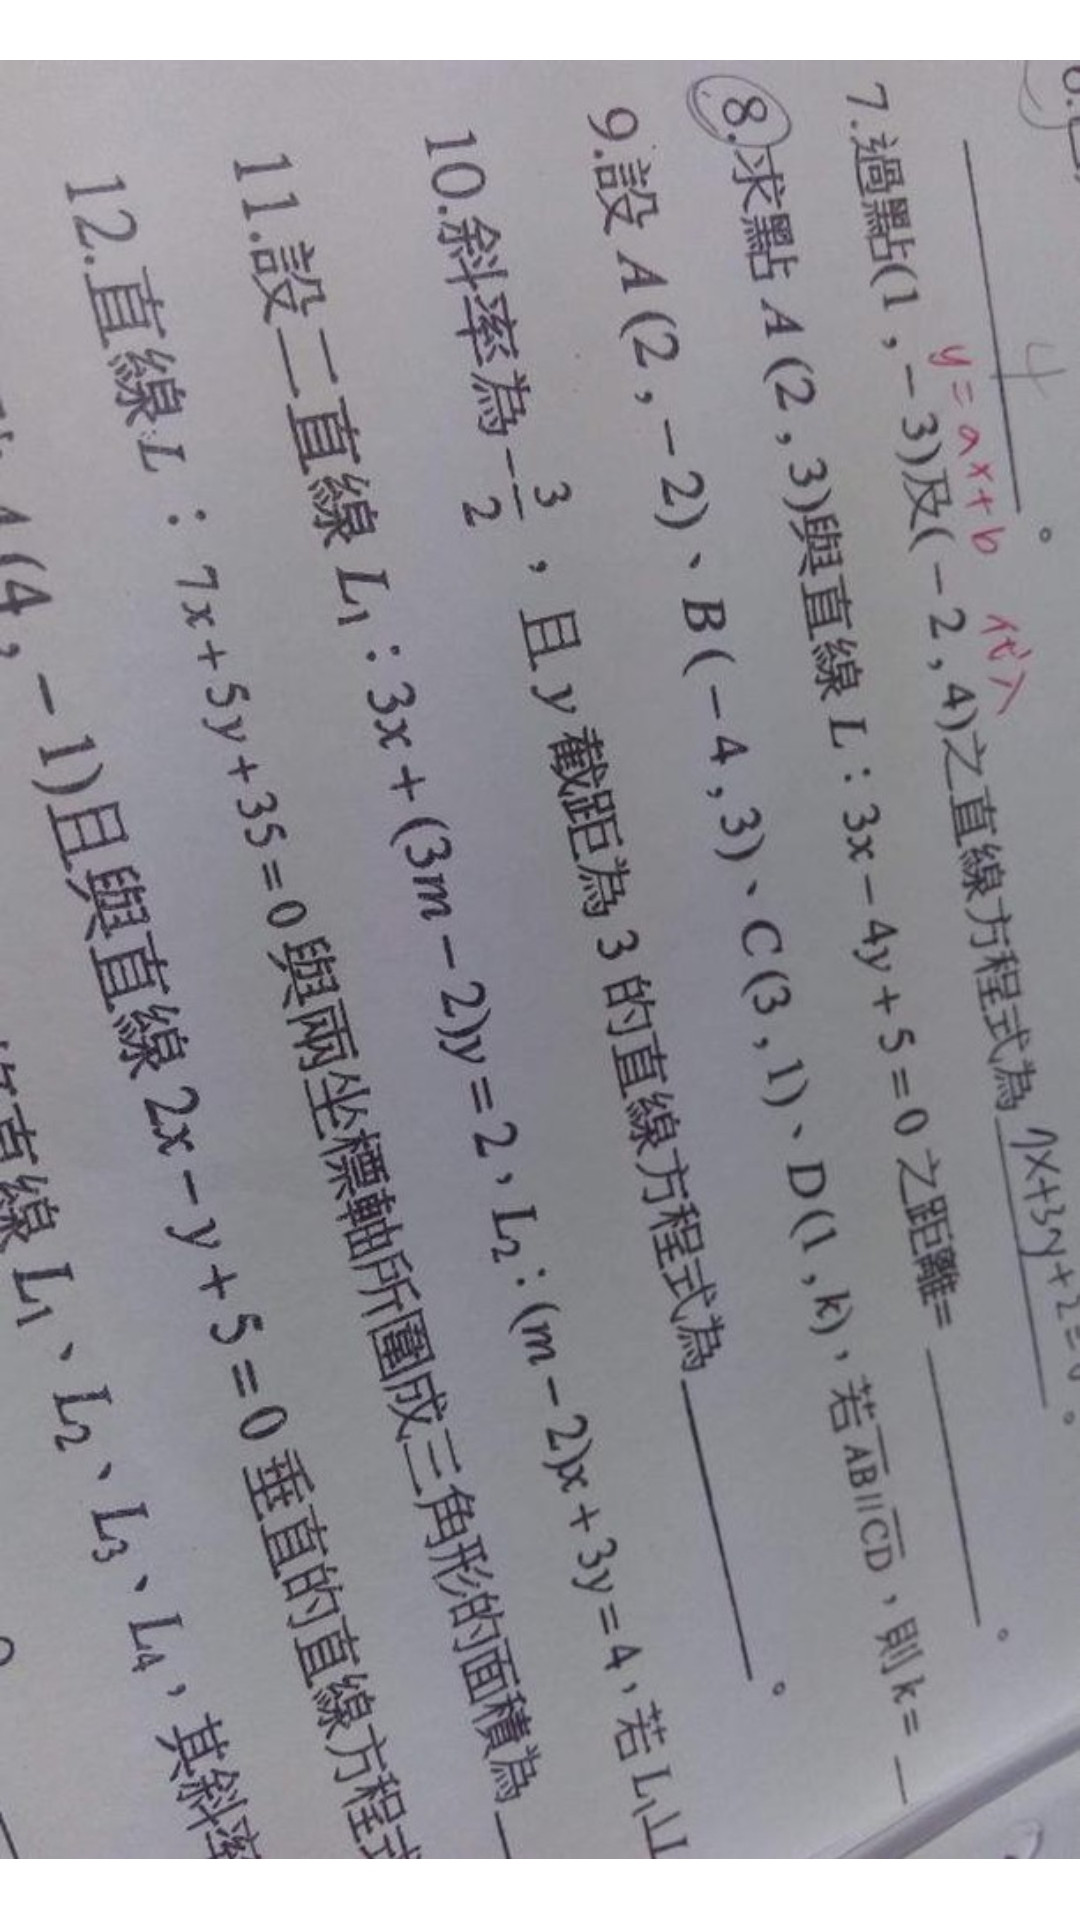 4
。
y=ax+b 代入
7.過點(1,-3)及(-2,4)之直線方程式為 7x+3y+2=0 。
8.求點A(2,3)與直線L:3x-4y+5=0之距離= 。
9.設A(2,-2)、B(-4,3)、C(3,1)、D(1,k),若AB//CD,則k=
10.斜率為-3/2,且y截距為3的直線方程式為 。
11.設二直線L1:3x+(3m-2)y=2、L2:(m-2)x+3y=4,若L1⊥
12.直線L:7x+5y+35=0與兩坐標軸所圍成三角形的面積為
(4,-1)且與直線2x-y+5=0垂直的直線方程式
直線L1、L2、L3、L4,其斜率